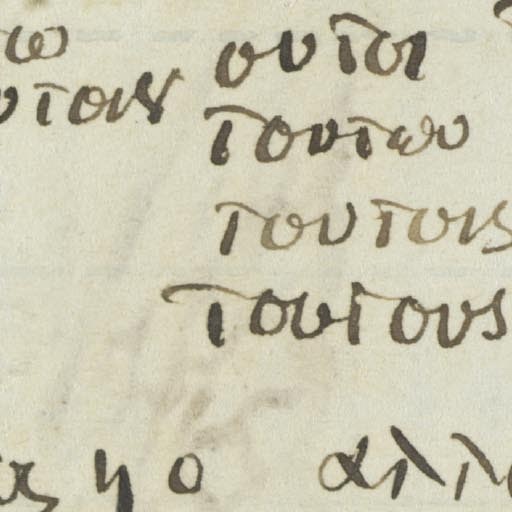 τω
ουτοι
υτοιν
τουτων
τουτοις
τουτους
ας η ο αλλ